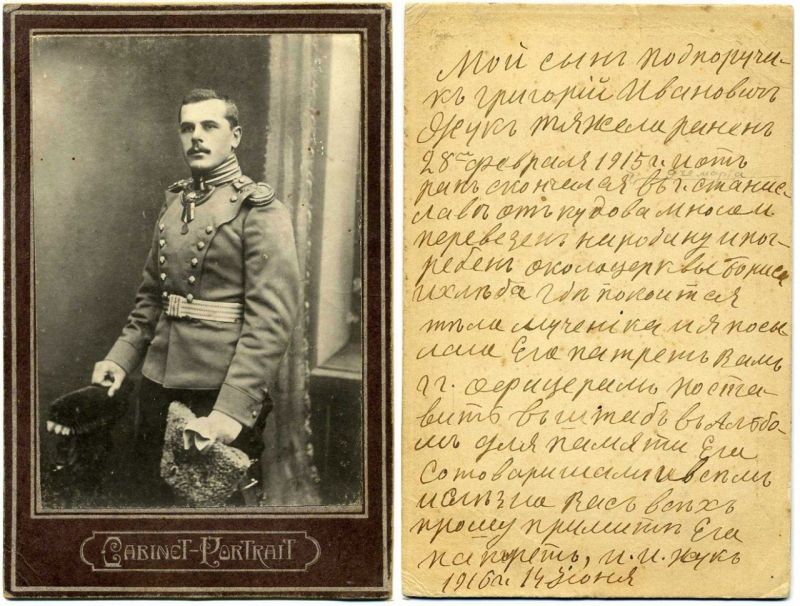 CABINET-PORTRAIT
Мой сынъ подпоручи-
къ григорій Ивановичъ
Жукъ тяжела раненъ
28го февраля 1915 г. и отъ
ранъ скончался въ г. станис-
лавъ отъ кудова мноем
перевезенъ народину и пог-
ребенъ около церквы бориса
ихлѣба гдѣ покоитса
тѣла мученіка и я посы
лаю Его патретъ Вамъ
гг. офицерамъ поста-
вить въ штабъ въ Альбо-
мъ для памяти Его
Сотоваришами и всѣмъ
и Васъ всѣхъ
прошу примитъ Его
патретъ, И. И. Жукъ
1916 г. 14 Июня